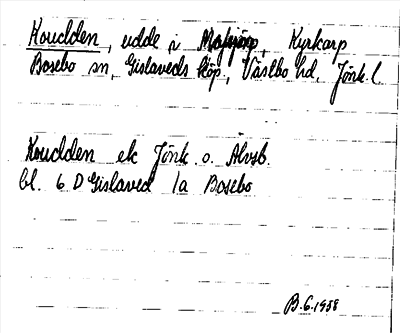 Koudden, udde i Kyrkarp
Bosebo sn, Gislaveds köp, Västbo hd, Jönk. l
Koudden ek Jönk. o. Älvsb.
bl. 6 D Gislaved 1a Bosebo
B.G. 1958